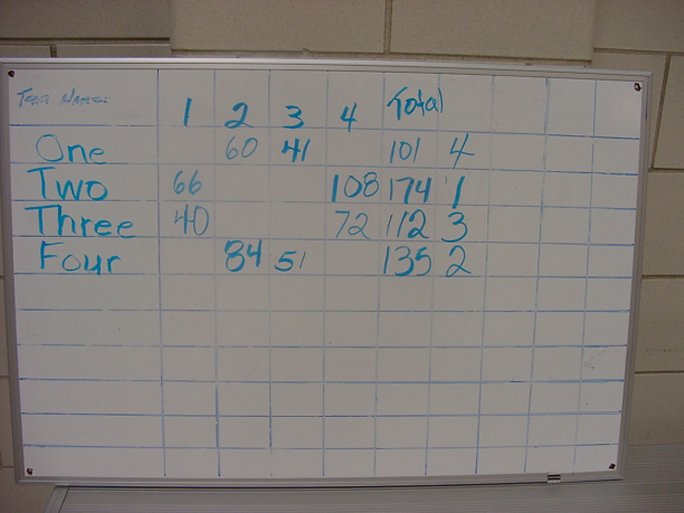 Team Names 1 2 3 4 Total
One 60 41 101 4
Two 66 108 174 1
Three 40 72 112 3
Four 84 51 135 2